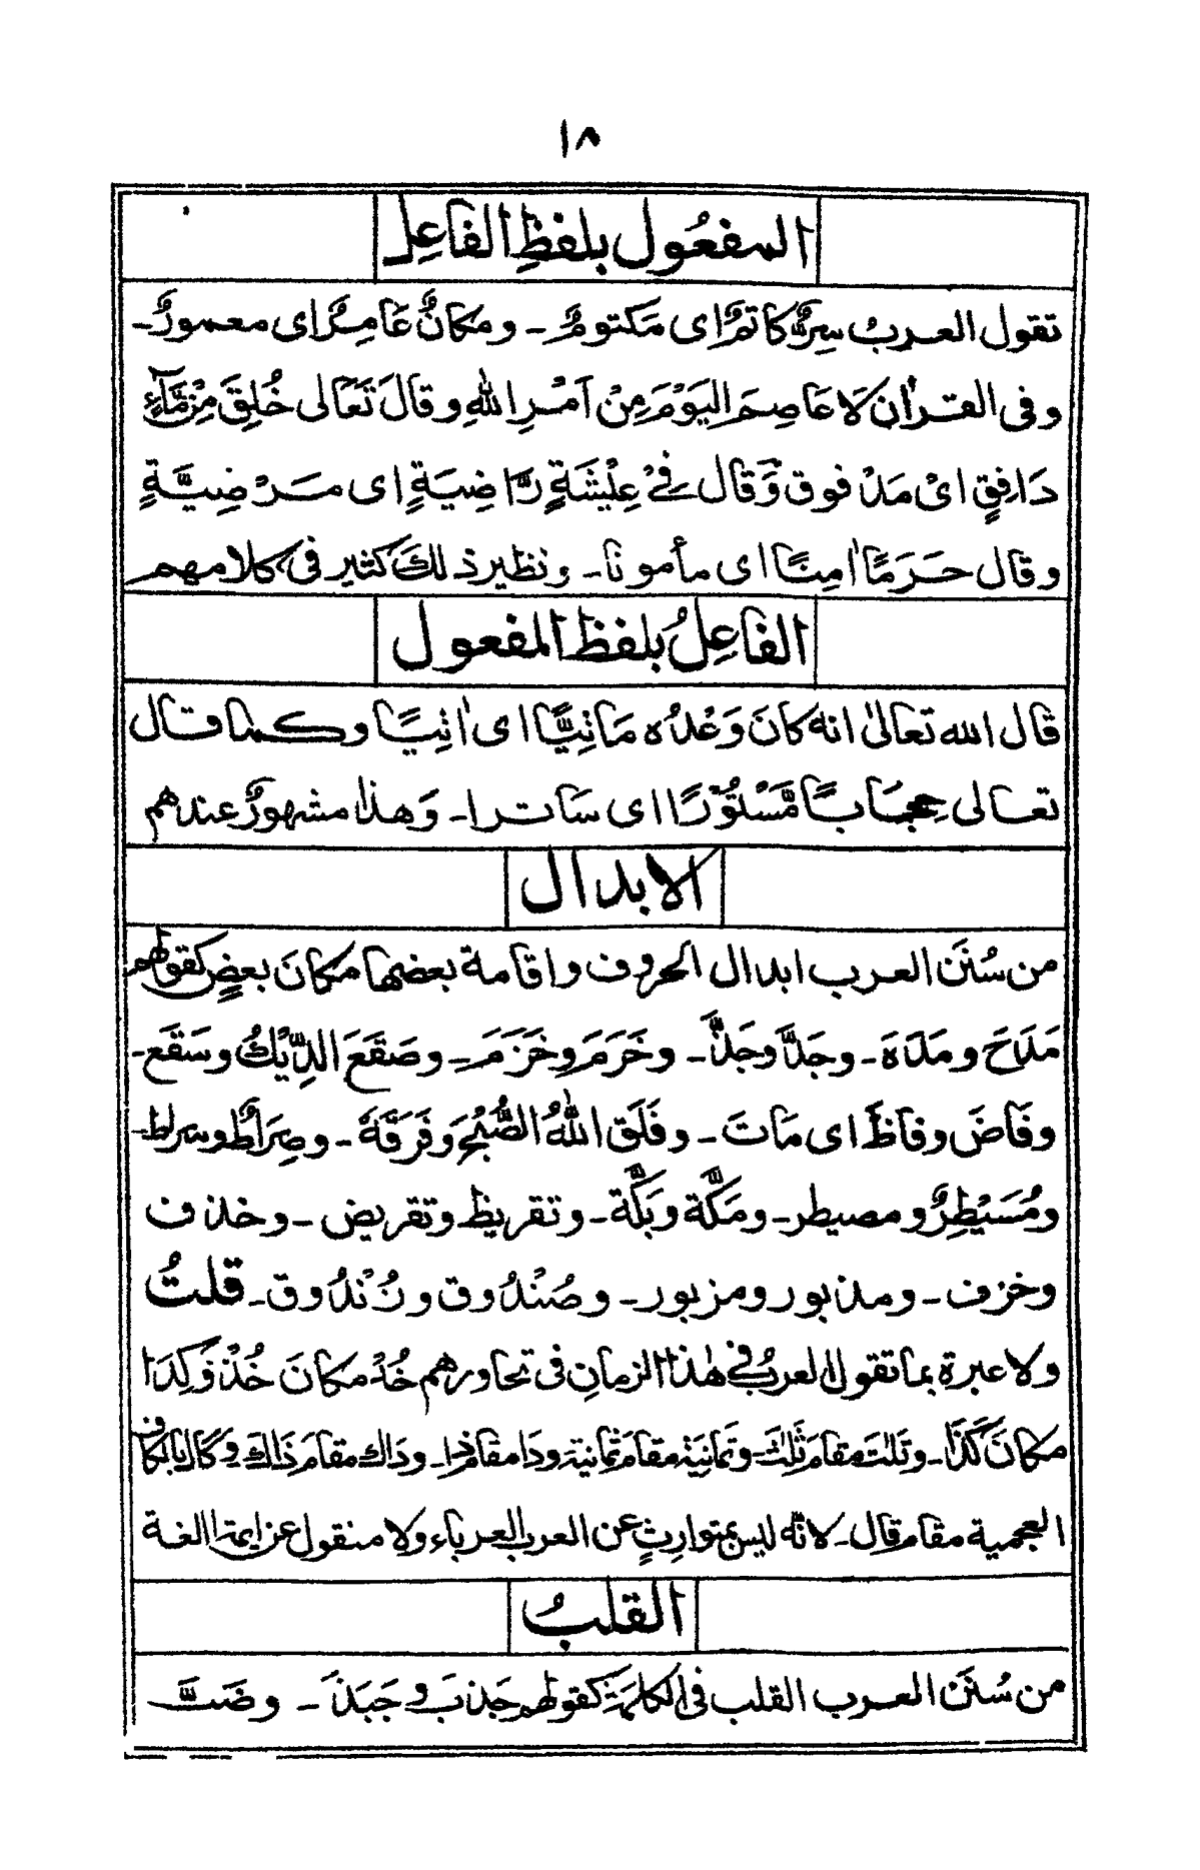 ١٨
المفعُول بلفظِ الفاعِل
تقول العرب سِرٌّ كاتمٌ ای مَكتومٌ ـ ومَكانٌ عَامِرٌ ای معمورٌ ـ
وفی القراٰن لَا عَاصِمَ الیَوْمَ مِنْ اَمْرِ اللهِ وقالَ تَعَالی خُلِقَ مِنْ مَّآءٍ
دَافِقٍ ایْ مَدْفوق وَّقال فِیْ عِیْشَةٍ رَّاضِیَةٍ ای مَرْضِیَّةٍ
وقال حَرَمًا اٰمِنًا ای مأمونا ـ ونظیر ذلكَ كثیر فی كلامهم
الفاعِلُ بلفظ المفعول
قال الله تعالیٰ انه كانَ وَعْدُه مَاتِیًّا ای اٰتِیًا وكما قال
تعالی حِجَابًا مَّسْتُوْرًا ای سَاترا ـ وَهذا مشهورٌ عندهم
الابدال
من سُنَن العرب ابدال الحروف واقامة بعضها مكانَ بعضٍ كقولهم
مَدَحَ ومَدَهَ ـ وجَدَّ وجَذَّ ـ وخَرَمَ وخَزَمَ ـ وصَقَعَ الدِّیْكُ وسَقَع ـ
وفَاضَ وفاظَ ای مَاتَ ـ وفَلَقَ اللهُ الصُّبْحَ وفَرَقَهُ ـ وصِرَاطٌ وسراط ـ
ومُسَیْطِرٌ ومصیطر ـ ومَكَّة وبَكَّة ـ وتقریظ وتقریض ـ وخذف
وخزف ـ ومذبور ومزبور ـ وصُنْدُوق وزُنْدُوق ـ قلتُ
ولا عبرة بما تقول العربُ فی هٰذا الزمانِ فی تحاورهم خُدْ مكانَ خُذْ وَكِدَا
مكانَ كَذَا ـ وتَلٰتَ مقام ثَلٰثَ ـ وتَمانِیَة مقامَ ثمانِیة ودَا مقام ذا ـ ودَاك مقام ذَاكَ ـ وگَال بالكاف
العجمیة مقام قال ـ لانّه لیس بمتوارِثٍ عن العرب العرباء ولا منقول عن ایمة اللغة
القلبُ
من سُنَن العرب القلب فی الكلمةِ كقولهم جَذبَ وجَبَذَ ـ وضَبَّ